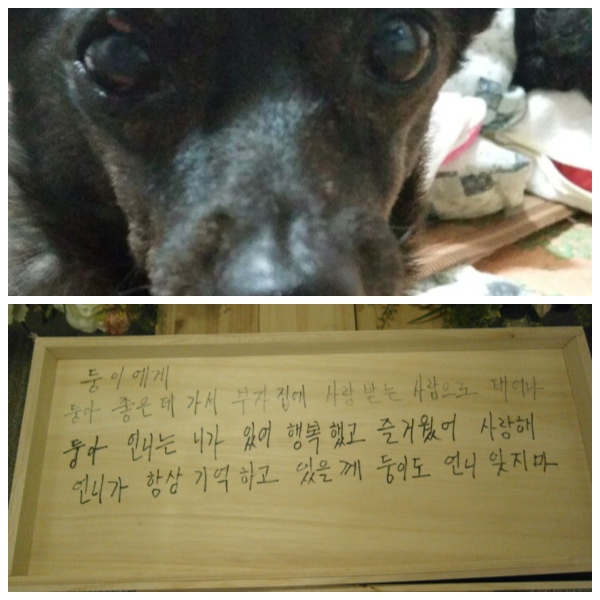 둥이에게
둥아 좋은데 가서 부자집에 사랑받는 사람으로 태어나
둥아 언니는 니가 있어 행복했고 즐거웠어 사랑해
언니가 항상 기억하고 있을께 둥이도 언니 잊지마